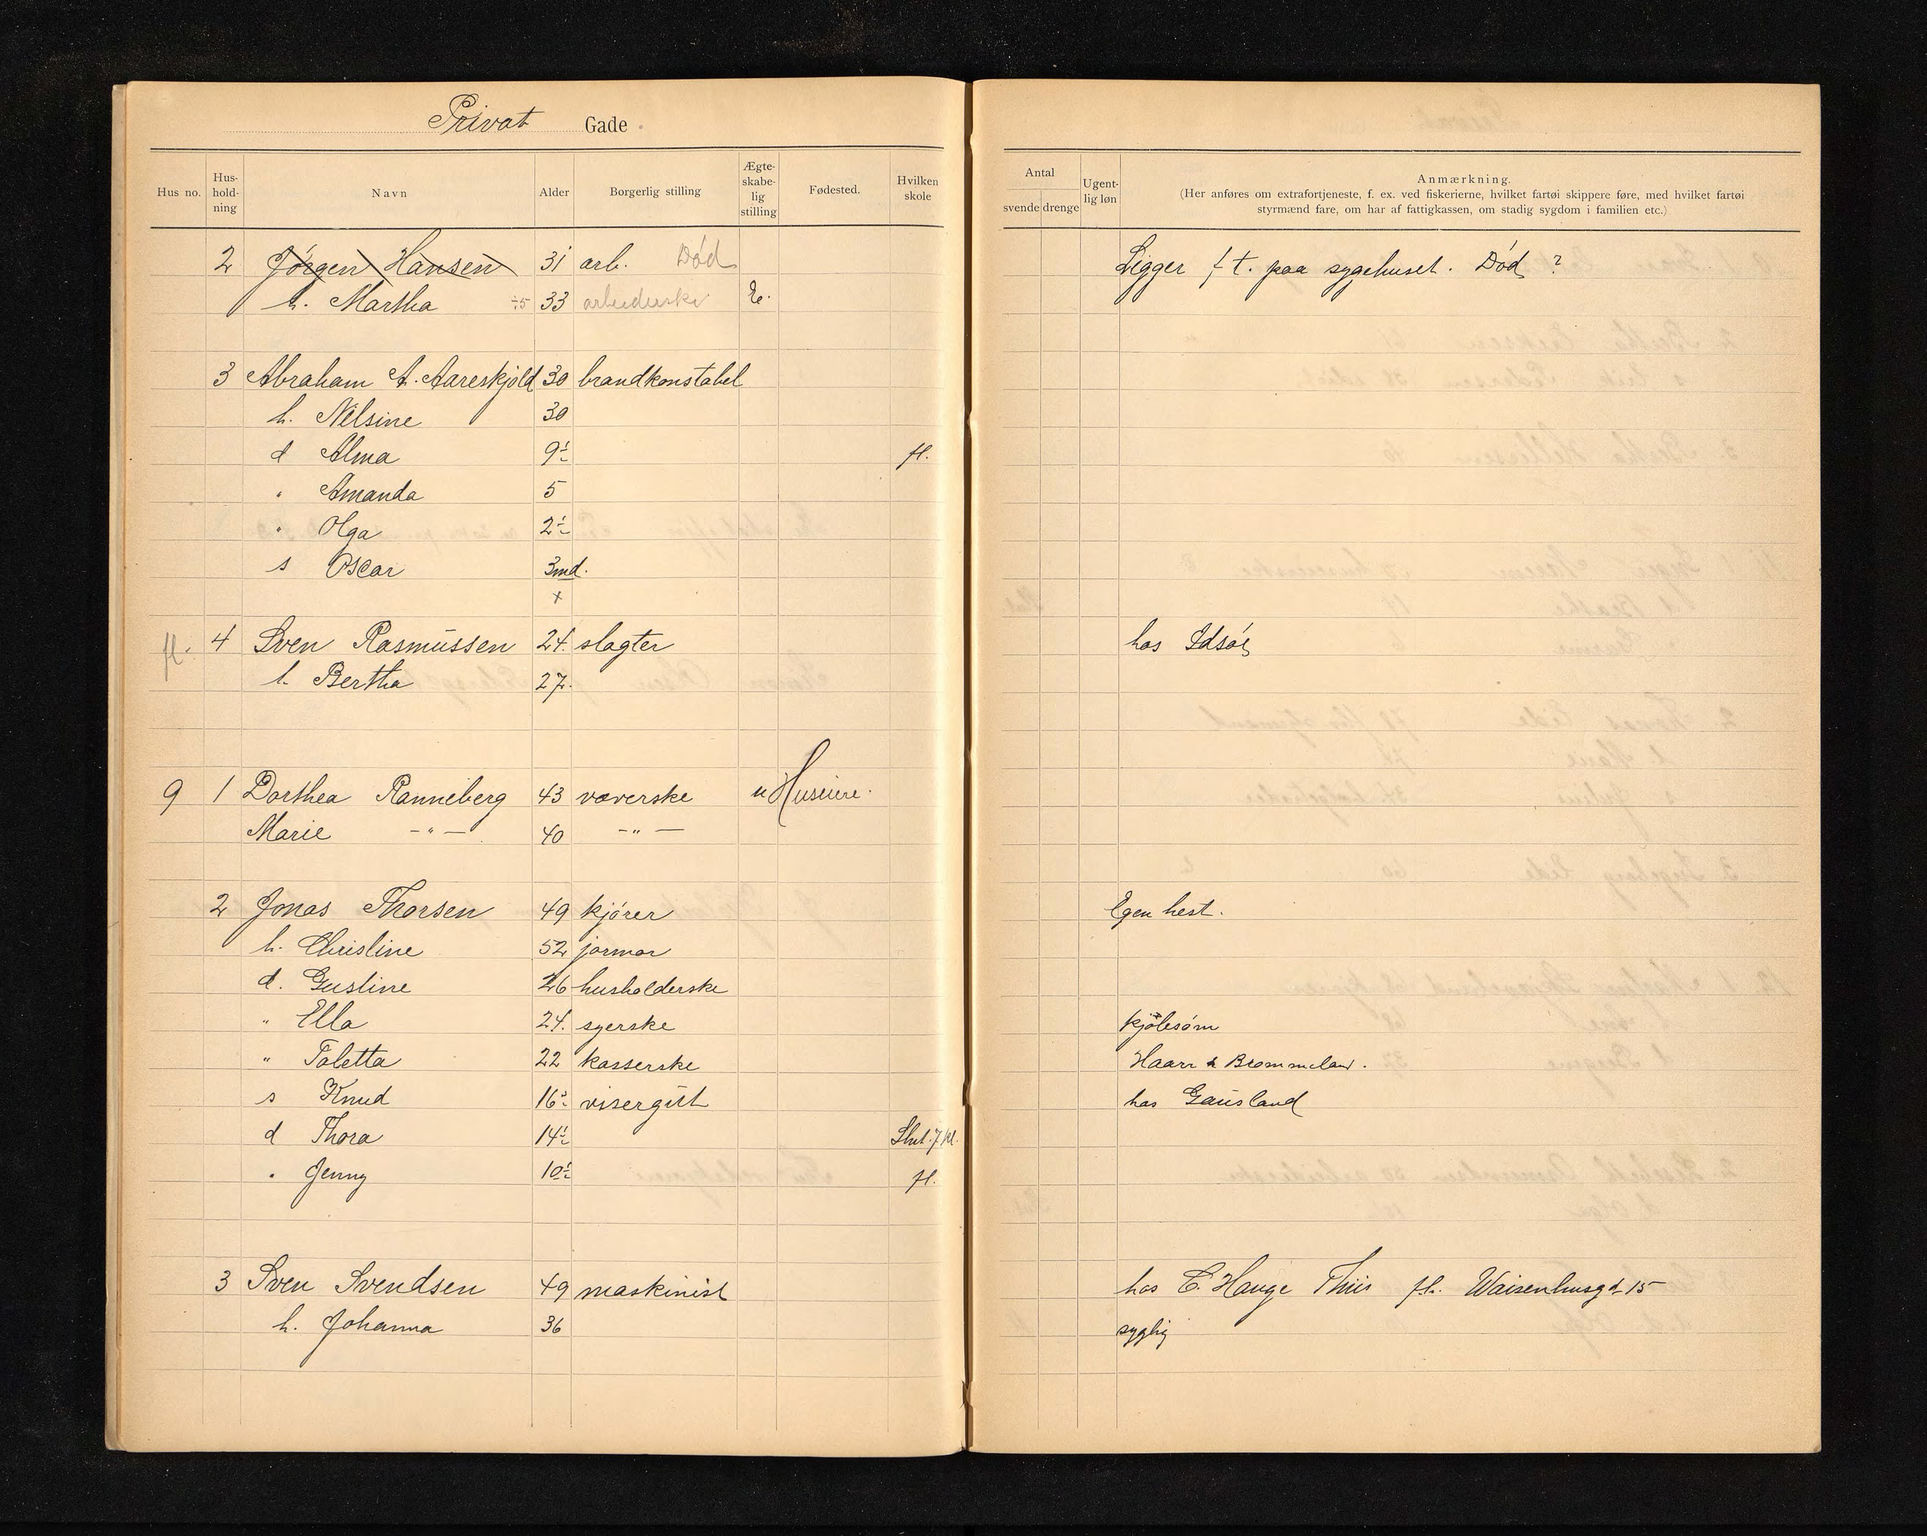 Privat Gade
Hus no. Hus-hold-ning Navn Alder Borgerlig stilling Ægte-skabe-lig stilling Fødested. Hvilken skole
Antal svende drenge Ugent-lig løn Anmærkning.
(Her anføres om extrafortjeneste, f. ex. ved fiskerierne, hvilket fartøi skippere føre, med hvilket fartøi
styrmænd fare, om har af fattigkassen, om stadig sygdom i familien etc.)
2 Jørgen Hansen 31 arb. Død Ligger f t. paa sygehuset. Død ?
h. Martha ÷5 33 arbeiderske E.
3 Abraham A. Aareskjold 30 brandkonstabel
h. Nilsine 30
d Alma 9½ fl.
" Amanda 5
" Olga 2½
s Oscar 3md.
+
fl. 4 Sven Rasmussen 24. slagter hos Idsøe
h. Bertha 27.
9 1 Dorthea Ranneberg 43 væverske u Huseiere.
Marie -"- 40 -"-
2 Jonas Thorsen 49 kjører Egen hest.
h. Christine 52 jormor
d. Gustine 26 husholderske
" Ella 24. syerske kjolesøm
" Taletta 22 kasserske Haarr & Brommeland.
s Knud 16½ visergut hos Gausland
d Thora 14½ Slut. 7 kl.
" Jenny 10½ fl.
3 Sven Svendsen 49 maskinist hos C. Hauge Thiis fl. Waisenhusgd 15
h. Johanna 36 syglig